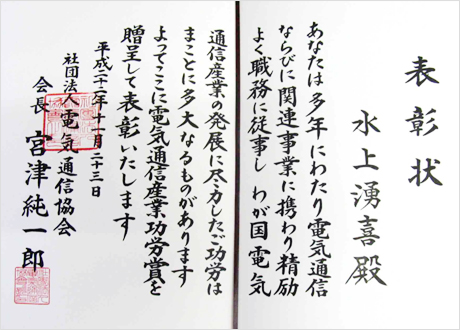 表彰状
水上湧喜殿
あなたは多年にわたり電気通信
ならびに関連事業に携わり精励
よく職務に従事し わが国電気
通信産業の発展に尽力したご功労は
まことに多大なるものがあります
よってここに電気通信産業功労賞を
贈呈して表彰いたします
平成二十二年十一月二十三日
社団法人電気通信協会
会長 宮津純一郎